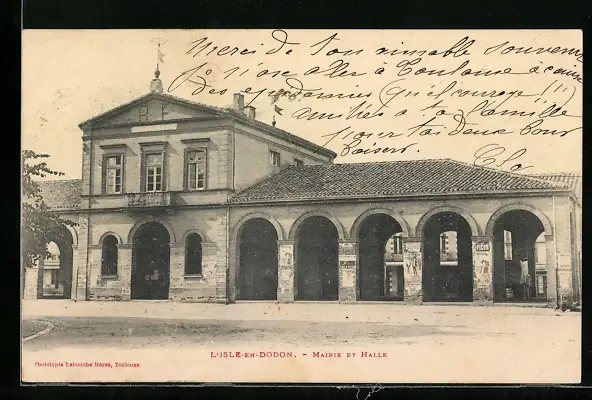 Merci de ton aimable souvenir
Je n'ose aller à Toulouse à cause
des épidémies (quel courage!!!)
amitiés à ta famille
pour toi deux bons
baisers
R F
L'ISLE-EN-DODON. - MAIRIE ET HALLE
Phototypie Labouche frères, Toulouse